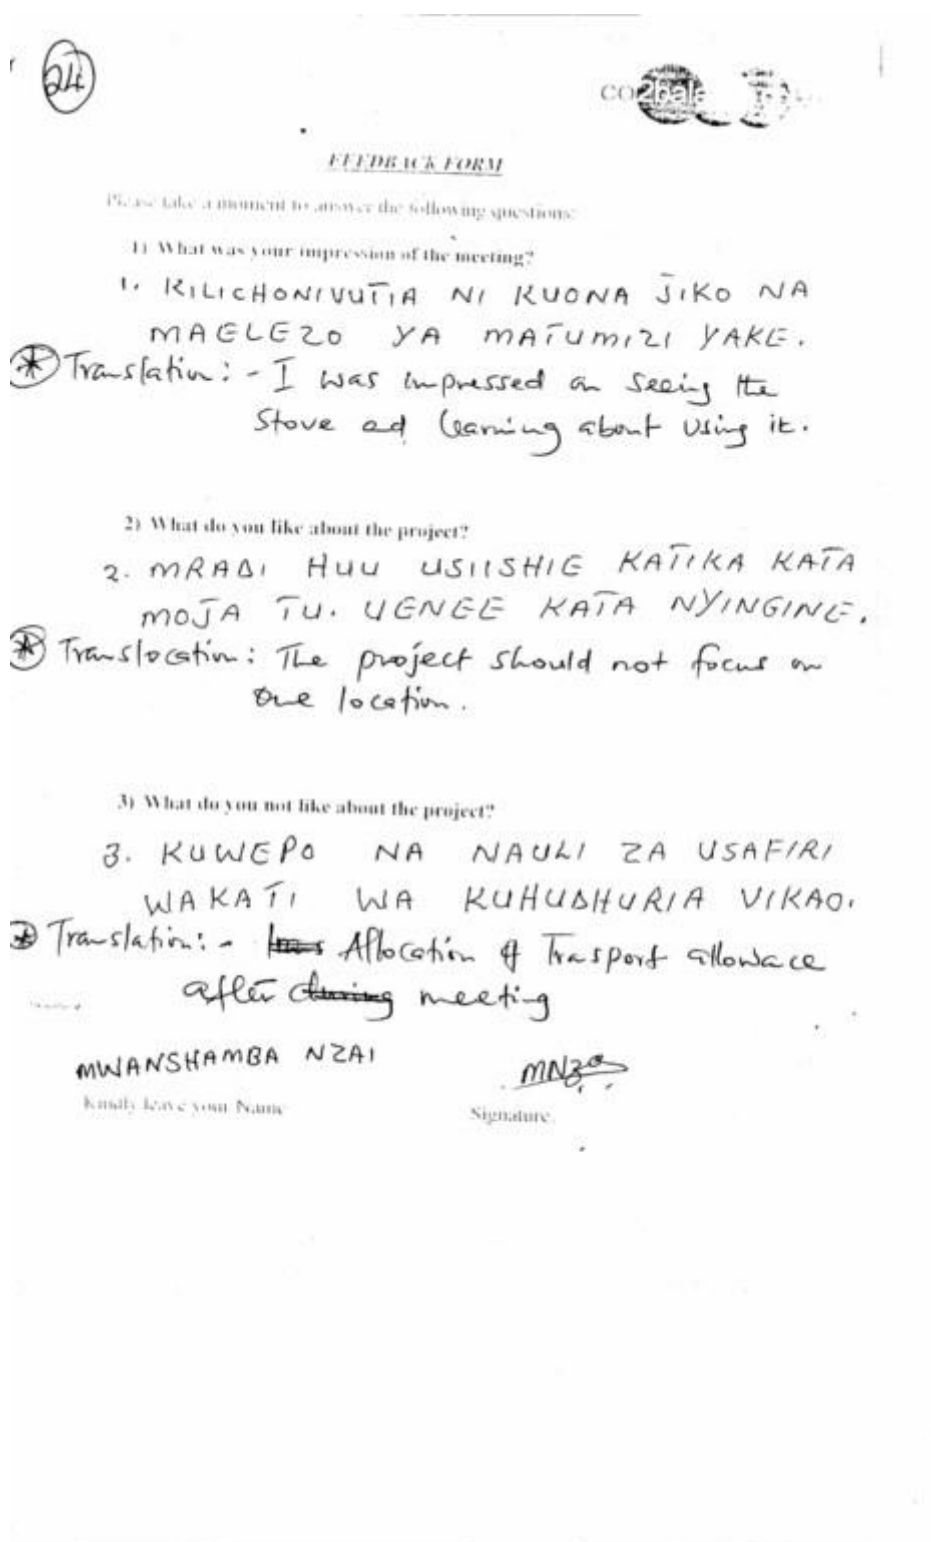 24
CO2bala
FEEDBACK FORM
Please take a moment to answer the following questions:
1) What was your impression of the meeting?
1. KILICHONIVUTIA NI KUONA JIKO NA
MAELEZO YA MATUMIZI YAKE.
* Translation: - I was impressed on seeing the
Stove ad learning about using it.
2) What do you like about the project?
2. MRADI HUU USIISHIE KATIKA KATA
MOJA TU. UENEE KATA NYINGINE.
* Translocation: The project should not focus on
one location.
3) What do you not like about the project?
3. KUWEPO NA NAULI ZA USAFIRI
WAKATI WA KUHUDHURIA VIKAO.
* Translation: - Allocation of Trasport allowace
after during meeting
MWANSHAMBA NZAI MNza
Kindly leave your Name Signature.